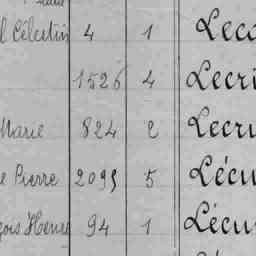 l Célestin 4 1
1526 4
Marie 824 2
e Pierre 2095 5 Lécu
çois Henri 94 1 Lécu